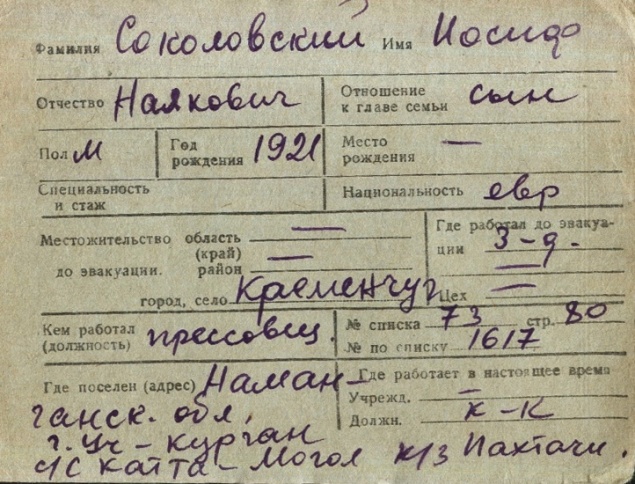 Фамилия Соколовский Имя Иосиф
Отчество Наякович Отношение к главе семьи сын
Пол М Год рождения 1921 Место рождения —
Специальность и стаж Национальность евр
Местожительство область — Где работал до эвакуа-
(край) — ции З-д.
до эвакуации. район —
город, село Кременчуг Цех —
Кем работал (должность) прессовщ. № списка 73 стр. 80
№ по списку 1617
Где поселен (адрес) Наман- Где работает в настоящее время
ганск. обл, Учрежд. —
г. Уч-Курган Должн. к-к
с/с Катта-Могол к/з Пахтачи.